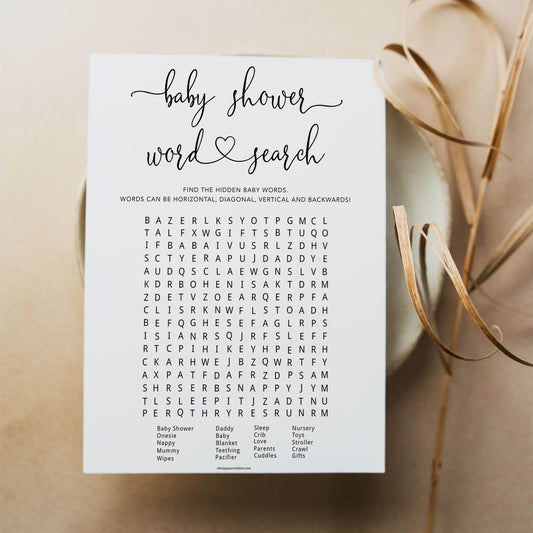 baby shower
word search
FIND THE HIDDEN BABY WORDS.
WORDS CAN BE HORIZONTAL, DIAGONAL, VERTICAL AND BACKWARDS!
B A Z E R L K S Y O T P G M C L
T A L F X W G I F T S B T U Q O
I F B A B A I V U S R L Z D H V
S C T Y E R A P U J D A D D Y E
A U D Q S C L A E W G N S L V B
K D R B O H E N I S A K T D R M
Z D E T V Z O E A R Q E R P F A
C L I S R K N W F L S T O A D H
B E F Q G H E S E F A G L R P S
I S I A N R S Q J R F S L E F F
R T C P I H I K E Y H P E N R H
C K A R H W E J B Z Q W R T F Y
A X P A T F D A F R Z D P S A M
S H R S E R B S N A P P Y J Y M
T L S L E E P I T J Z A D T N U
P E R Q T H R Y R E S R U N R M
Baby Shower Daddy Sleep Nursery
Onesie Baby Crib Toys
Nappy Blanket Love Stroller
Mummy Teething Parents Crawl
Wipes Pacifier Cuddles Gifts